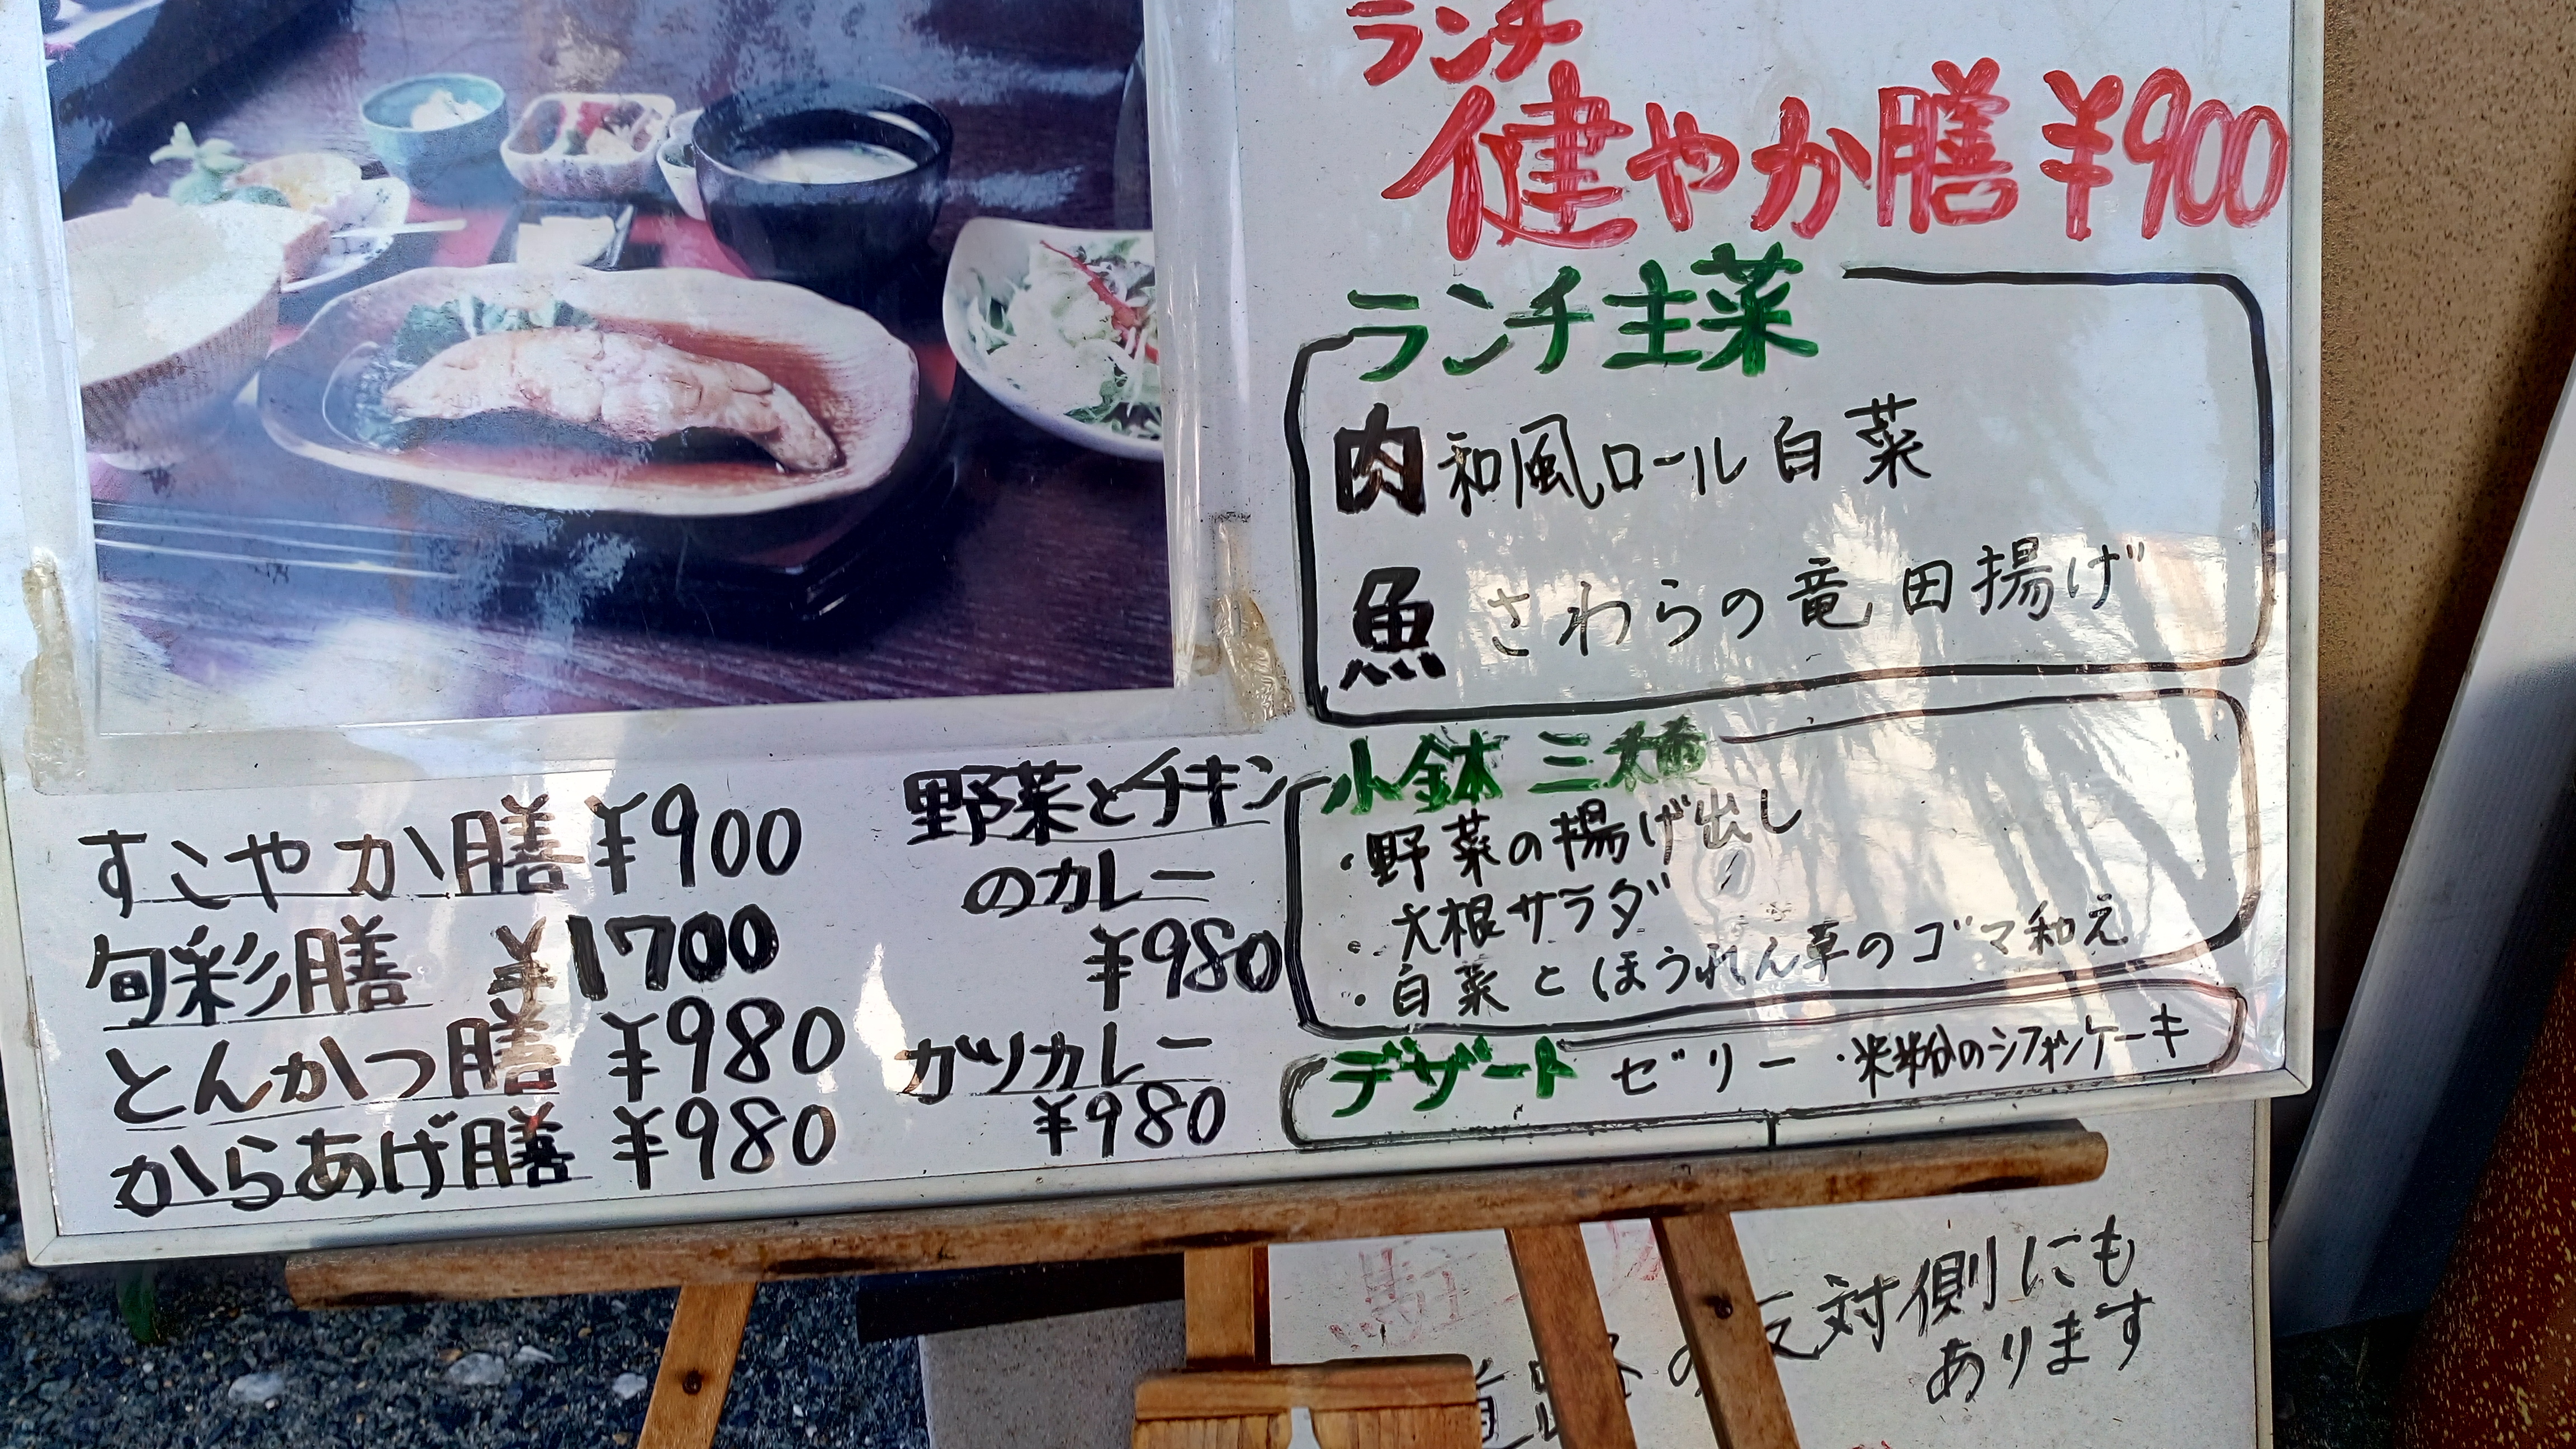 ランチ
健やか膳 ¥900
ランチ主菜
肉 和風ロール白菜
魚 さわらの竜田揚げ
小鉢 三種
・野菜の揚げ出し
・大根サラダ
・白菜とほうれん草のゴマ和え
デザート ゼリー ・米粉のシフォンケーキ
すこやか膳 ¥900
旬彩膳 ¥1700
とんかつ膳 ¥980
からあげ膳 ¥980
野菜とチキン
のカレー
¥980
カツカレー
¥980
の反対側にも
あります